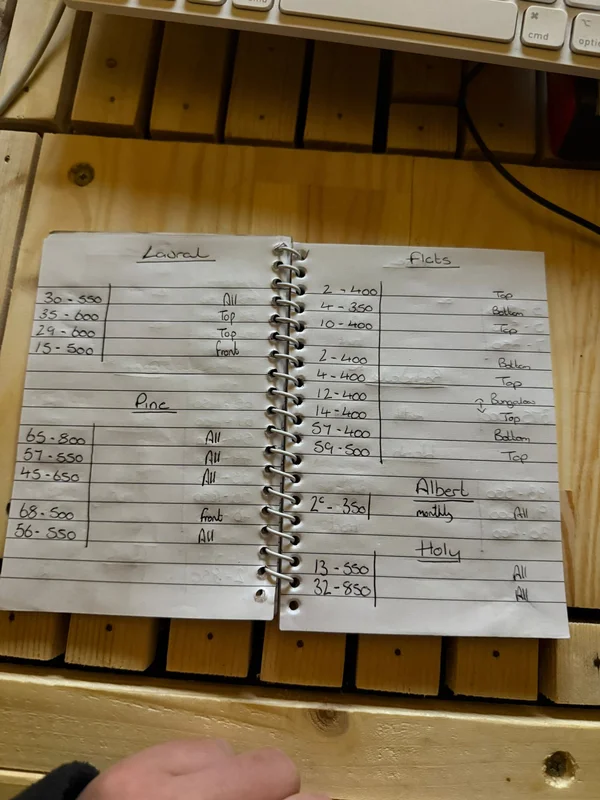 cmd
⌘
cmd
⌥
optio
Laural
30 - 550 All
35 - 600 Top
29 - 600 Top
15 - 500 Front
Pine
65 - 800 All
57 - 550 All
45 - 650 All
68 - 500 Front
56 - 550 All
Flats
2 - 400 Top
4 - 350 Bottom
10 - 400 Top
2 - 400 Bottom
4 - 400 Top
12 - 400 Bungalow
14 - 400 Top
57 - 400 Bottom
59 - 500 Top
Albert
- 350 monthly All
Holy
13 - 550 All
32 - 850 All